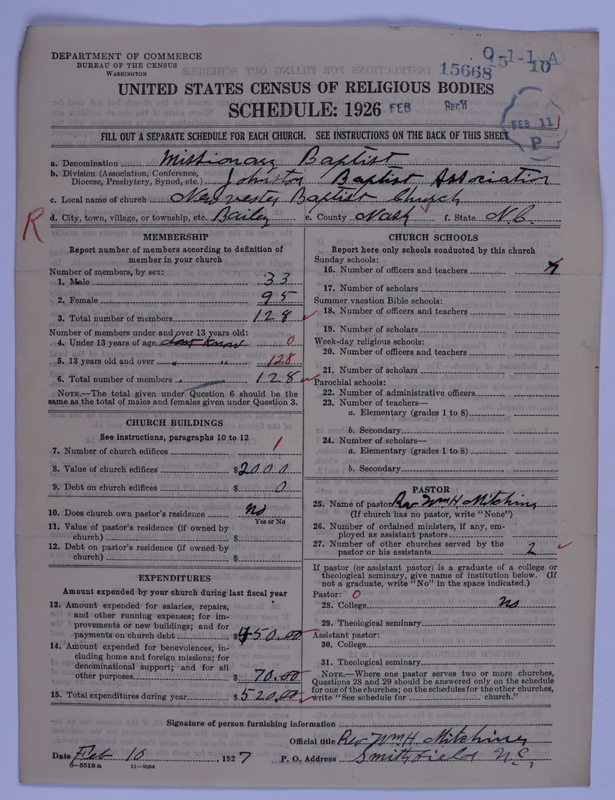 DEPARTMENT OF COMMERCE
BUREAU OF THE CENSUS
WASHINGTON
15668
10
UNITED STATES CENSUS OF RELIGIOUS BODIES
SCHEDULE: 1926 FEB Rec'd
FEB 11
P
FILL OUT A SEPARATE SCHEDULE FOR EACH CHURCH. SEE INSTRUCTIONS ON THE BACK OF THIS SHEET
a. Denomination Missionary Baptist
b. Division (Association, Conference, Diocese, Presbytery, Synod, etc.) Johnston Baptist Association
c. Local name of church Baptist Church
d. City, town, village, or township, etc. Bailey e. County Nash f. State N.C.
R
MEMBERSHIP
Report number of members according to definition of
member in your church
Number of members, by sex:
1. Male 33
2. Female 95
3. Total number of members 128
Number of members under and over 13 years old:
4. Under 13 years of age dont know 0
5. 13 years old and over 128
6. Total number of members 128
NOTE.—The total given under Question 6 should be
same as the total of males and females given under Question 3.
CHURCH BUILDINGS
See instructions, paragraphs 10 to 12
7. Number of church edifices 1
8. Value of church edifices $2000
9. Debt on church edifices $ 0
10. Does church own pastor's residence? No
Yes or No
11. Value of pastor's residence (if owned by
church) $
12. Debt on pastor's residence (if owned by
church) $
EXPENDITURES
Amount expended by your church during last fiscal year
13. Amount expended for salaries, repairs,
and other running expenses; for im-
provements or new buildings; and for
payments on church debt $450.00
14. Amount expended for benevolences, in-
cluding home and foreign missions; for
denominational support; and for all
other purposes $ 70.00
15. Total expenditures during year $520.00
CHURCH SCHOOLS
Report here only schools conducted by this church
Sunday schools:
16. Number of officers and teachers
17. Number of scholars
Summer vacation Bible schools:
18. Number of officers and teachers
19. Number of scholars
Week-day religious schools:
20. Number of officers and teachers
21. Number of scholars
Parochial schools:
22. Number of administrative officers
23. Number of teachers—
a. Elementary (grades 1 to 8)
b. Secondary
24. Number of scholars—
a. Elementary (grades 1 to 8)
b. Secondary
PASTOR
25. Name of pastor Rev Wm H Mitchiner
(If church has no pastor, write "None")
26. Number of ordained ministers, if any, em-
ployed as assistant pastors
27. Number of other churches served by the
pastor or his assistants 2
If pastor (or assistant pastor) is a graduate of a college or
theological seminary, give name of institution below. (If
not a graduate, write "No" in the space indicated.)
Pastor: 0
28. College No
29. Theological seminary
Assistant pastor:
30. College
31. Theological seminary
NOTE.—Where one pastor serves two or more churches,
Questions 28 and 29 should be answered only on the schedule
for one of the churches; on the schedules for the other churches,
write "See schedule for church."
Signature of person furnishing information
Official title Rev Wm H. Mitchiner
Date Feb 10 1927 P. O. Address Smithfield N.C.
6—5518 a 11—9054 7